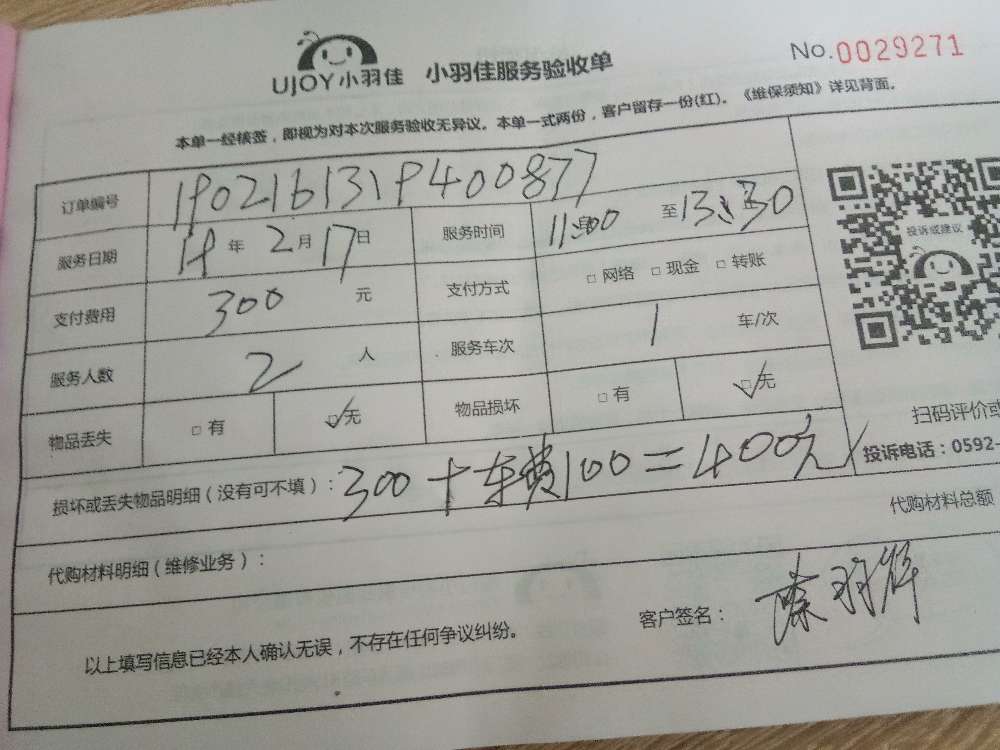 UJOY小羽佳 小羽佳服务验收单 No.0029271
本单一经核签，即视为对本次服务验收无异议。本单一式两份，客户留存一份(红)。《维保须知》详见背面。
订单编号 1902161319400877
服务日期 19年2月17日 服务时间 11:00 至 13:30
投诉或建议
支付费用 300 元 支付方式 □ 网络 □ 现金 □ 转账
服务人数 2 人 服务车次 1 车/次
物品丢失 □ 有 ☑无 物品损坏 □ 有 ☑无
扫码评价或
投诉电话：0592-
损坏或丢失物品明细（没有可不填）：300+车费100=400元
代购材料总额
代购材料明细（维修业务）：
以上填写信息已经本人确认无误，不存在任何争议纠纷。 客户签名：